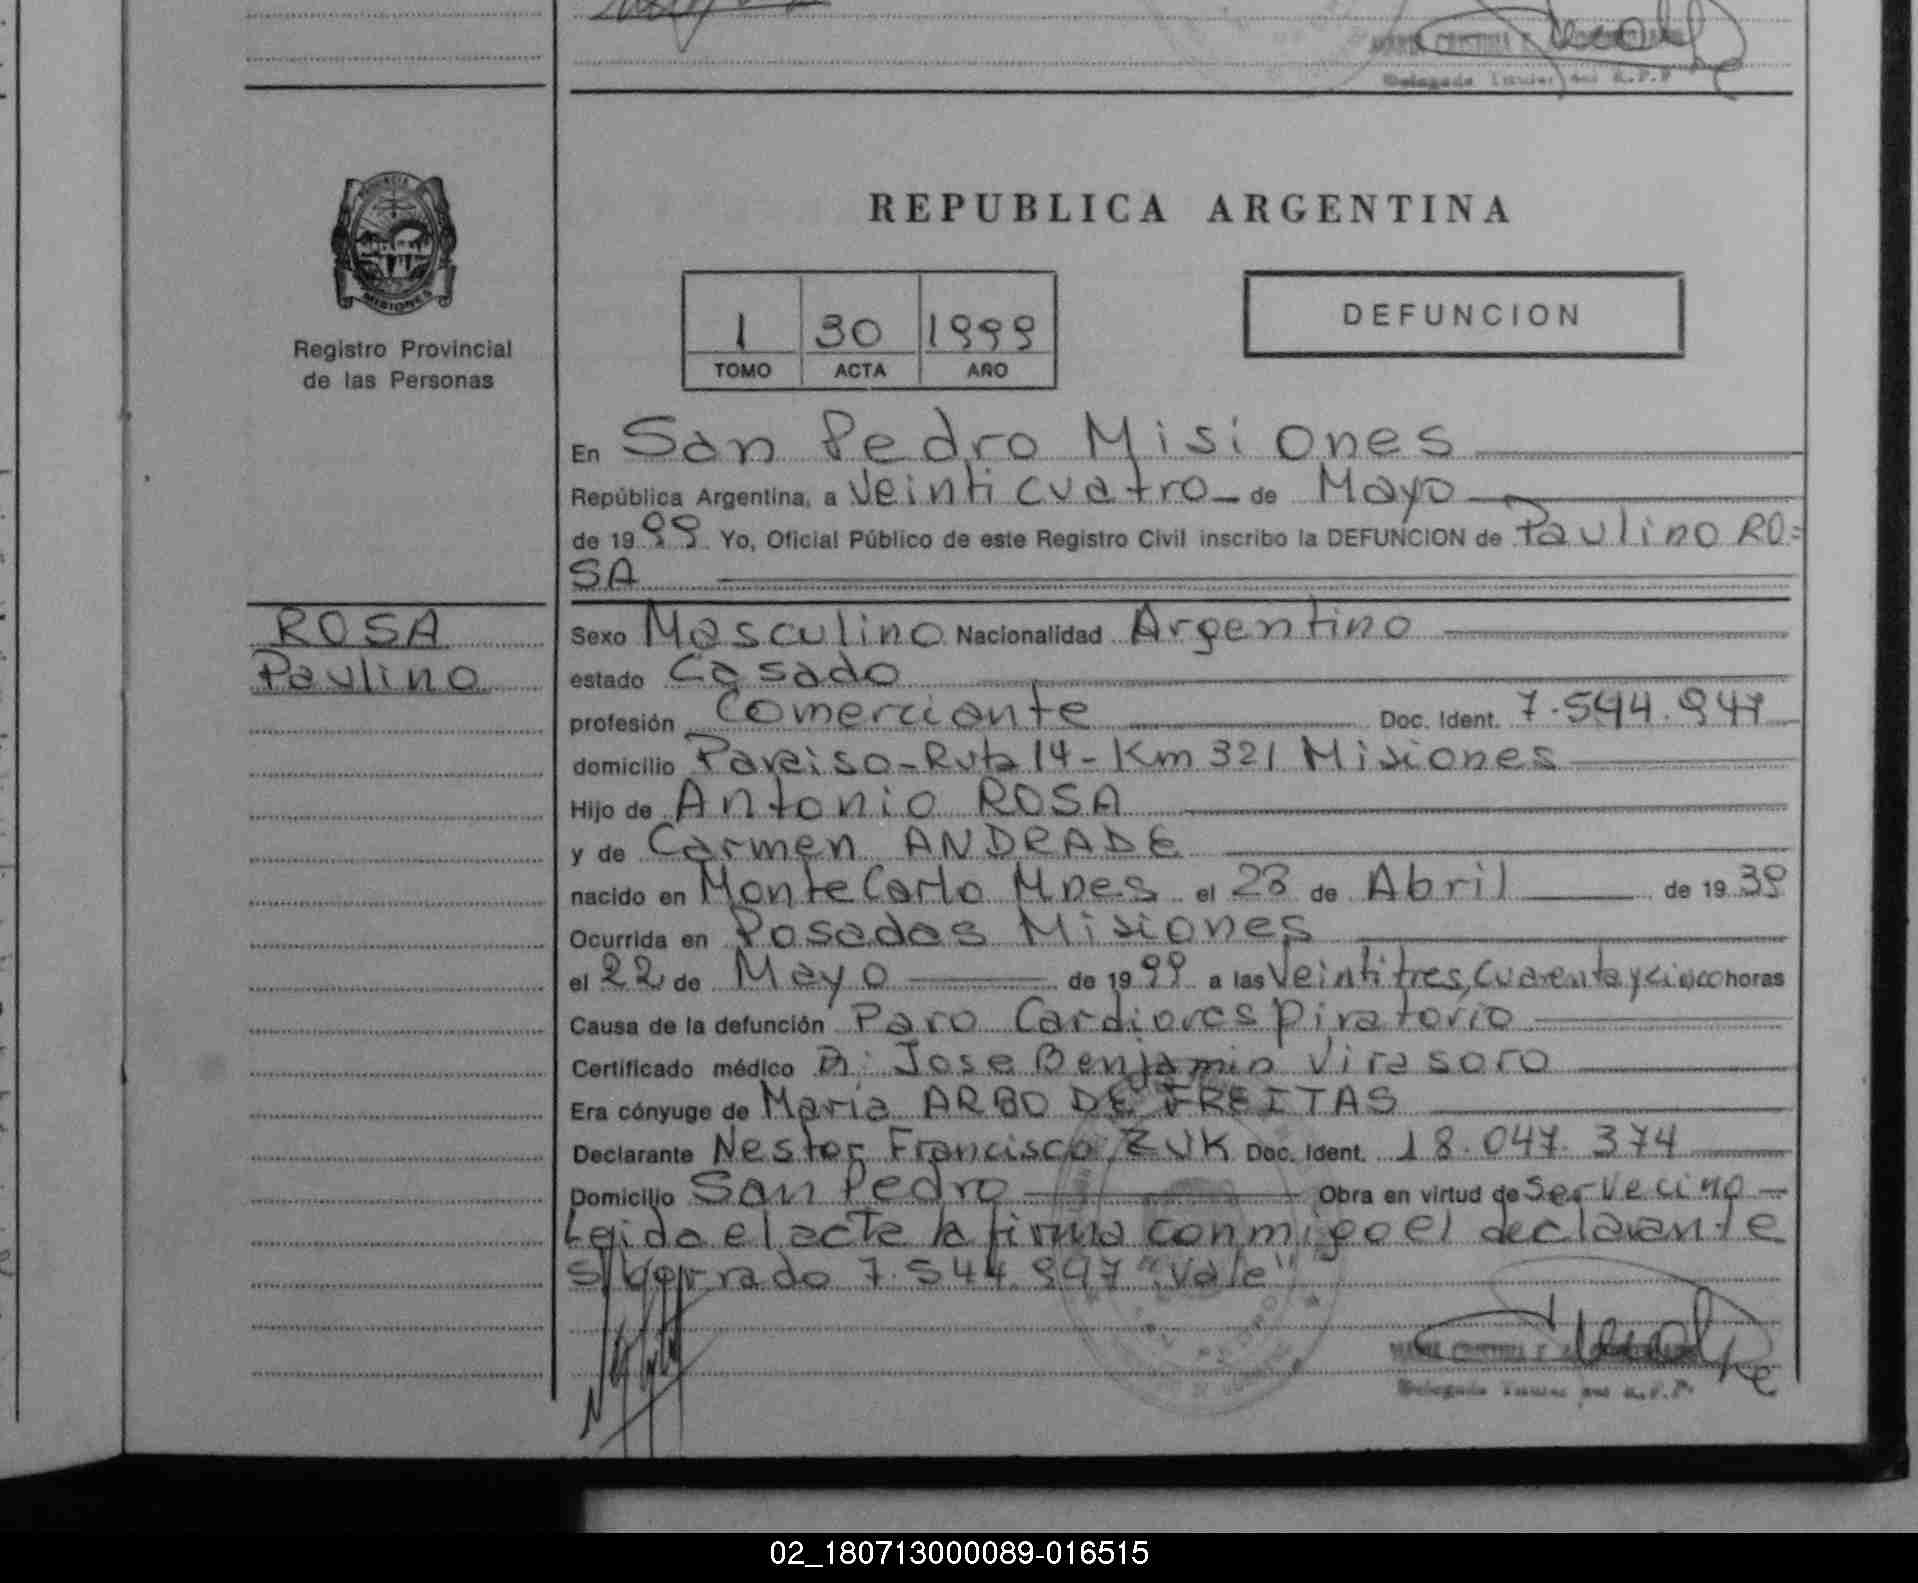 REPUBLICA ARGENTINA
PROVINCIA
MISIONES
Registro Provincial
de las Personas
1 30 1999
TOMO ACTA AÑO
DEFUNCION
En San Pedro Misiones
República Argentina, a Veinticuatro de Mayo
de 1999 Yo, Oficial Público de este Registro Civil inscribo la DEFUNCION de Paulino RO=
SA
ROSA
Paulino
Sexo Masculino Nacionalidad Argentino
estado Casado
profesión Comerciante Doc. Ident. 7.544.947
domicilio Paraiso-Ruta 14-Km 321 Misiones
Hijo de Antonio ROSA
y de Carmen ANDRADE
nacido en MonteCarlo Mnes el 28 de Abril de 1939
Ocurrida en Posadas Misiones
el 22 de Mayo de 1999 a las Veintitres, Cuarenta y cinco horas
Causa de la defunción Paro Cardiorespiratorio
Certificado médico Dr: Jose Benjamin Virasoro
Era cónyuge de Maria ARBO DE FREITAS
Declarante Nestor Francisco ZUK Doc. Ident. 18.047.374
Domicilio San Pedro Obra en virtud de Ser Vecino
Leida el acta la firma conmigo el declarante
S/ borrado 7.544.947 "Vale"
MARIA CRISTINA F.
Delegada Titular del R.P.P.
02_180713000089-016515